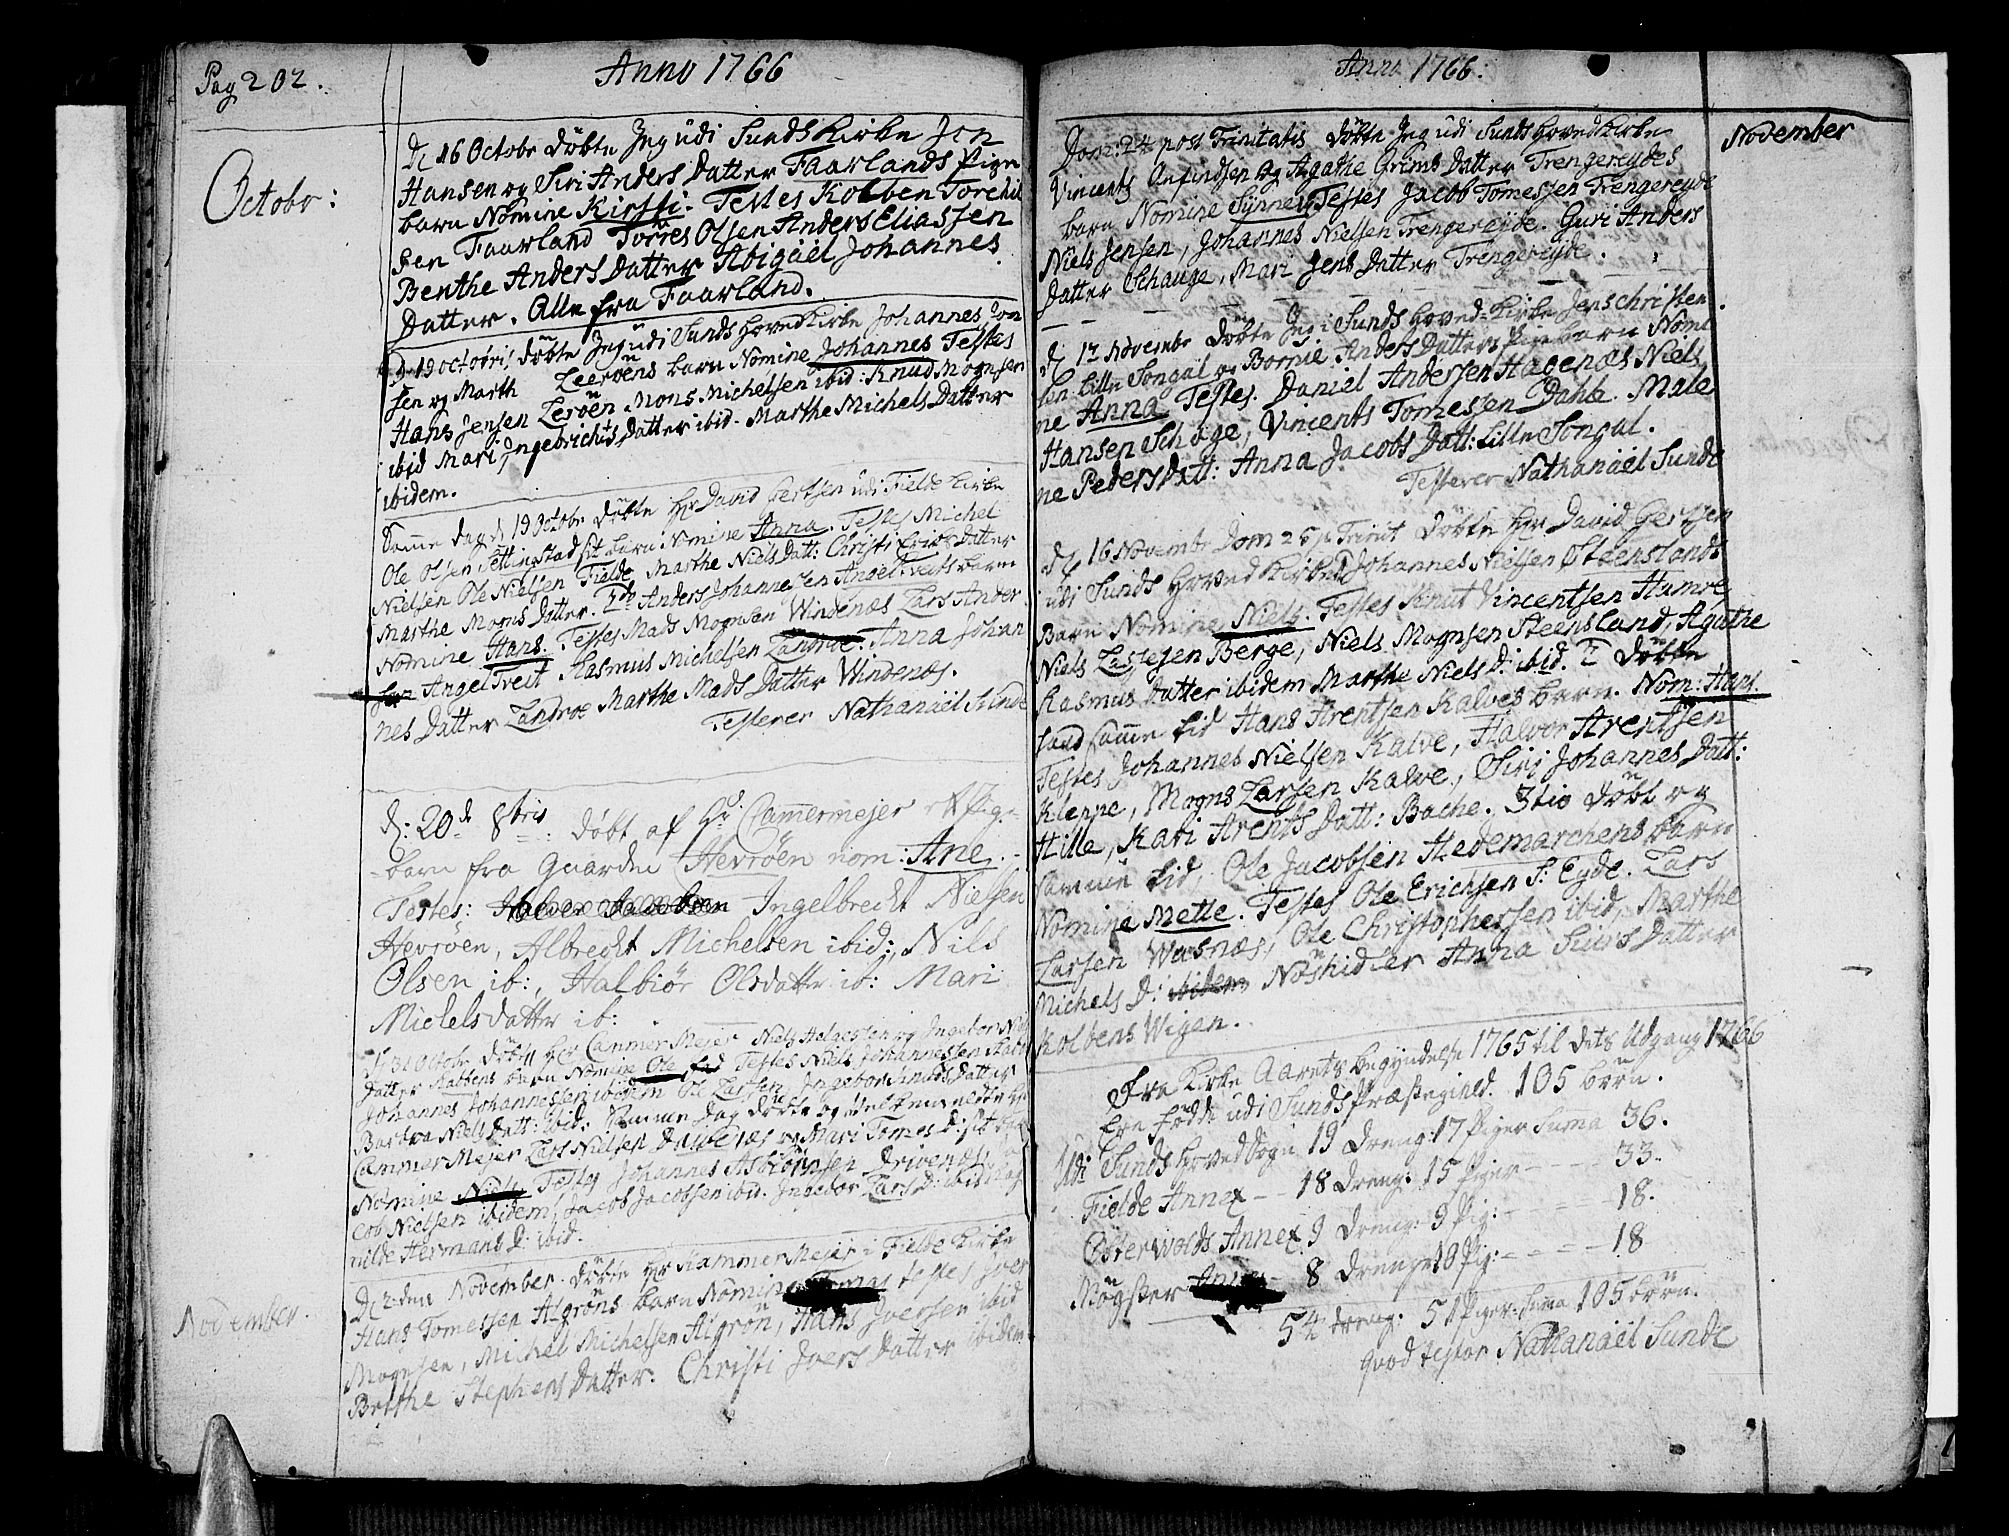 Pag 202.
Anno 1766
Octobr:
D 16 Octobr döbte Jeg udi Sunds Kirke Jon
Hansen og Siri Anders Datter Faarlands Pige
barn Nomine Kirsti. Testes Kolben Torchil
sen Faarland Torres Olsen Anders Eliassen
Benthe Anders Datter Abigäel Johannes
Datter. Alle fra Faarland.
D 19 octobris döbte Jeg udi Sunds Hoved Kirke Johannes Jon
sen og Marth Leeröens barn Nomine Johannes Testes
Hans Jensen Leröen Mons Michelsen ibid: Knud Mognsen
ibid Mari Ingebrichts Datter ibid. Marthe Michels Datter
ibidem.
Samme dag d 19 Octobr döbte Hr David Gertsen udi Fielde Kirke
Ole Olsen Tettingstad sit barn Nomine Anna. Testes Michel
Nielsen Ole Nielsen Fielde Marthe Niels Datt: Christi Erics Datter
Marthe Mogns Datter. 2do Anders Johannesen Angeltveits barn
Nomine Hans. Testes Mads Mognsen Windenæs Lars Ander
sen Angeltveit Rasmus Michelsen Landroe. Anna Johan
nes Datter Landroe Marthe Mads Datter Windenæs.
Testerer Nathanäel Sunde
d: 20d 8bris döbt af Hr Cammermejer et Pige-
-barn fra Guarden Hevröen nom: Ane.
Testes: Ingelbrecht Nielsen
Hevröen, Albrecht Michelsen ibid:, Nils
Olsen ib:, Halbiör Olsdatter ib: Mari
Michelsdatter ib:
D 31 Octobr döbte Hr Cammer Mejer Niels Helgessen og Ingebor Niels
Datter Rabbens barn Nomine Ole Testes Niels Johannessen
Johannes Johannessen ibidem Ole Larssen, Ingebor Knuds Datter
Barbra Niels Datt: ibid: Samme Dag döbte og velbemeldte Hr
Cammer Mejer Lars Nielsen og Mari Tomes D: sit barn
Nomine Niels Testes Johannes Asbiörnsen Drivenæs, Ja
cob Nielsen ibidem, Jacob Jacobsen ibid. Ingebor Lars D: ibid Mag
nilde Hermans D: ibid.
November.
D 2den November. döbte Hr Kammer Mejer i Fielde Kirke
Hans Tomessen Algröns barn Nomine Tomas testes Joer
Mognsen, Michel Michelsen Algrön, Hans Joersen ibid
Brithe Stephens Datter. Christi Joers Datter ibidem
Anno 1766:
November
Dom: 24 post Trinitatis döbte Jeg udi Sunds Hoved Kirke
Vincents Anfindsen og Agathe Grims Datter Trengereydes
barn Nomine Synnev Testes Jacob Tomessen Trengereyde
Niels Jensen, Johannes Nielsen Trengereyde. Guri Anders
Datter Schauge, Mari Jens Datter Trengereyde.
D 12 Novembr döbte Jeg i Sunds Hoved-Kirke Jens christen
sen Lille Songal og Bornil Anders Datters Pigebarn Nomi
ne Anna Testes. Daniel Andersen Hagenæs Niels
Hansen Schoge, Vincents Tomessen Dahle. Male
ne Peders Datt: Anna Jacobs Datt: Lille Songal.
Testerer Nathanäel Sunde
D 16 Novembr Dom 25 p Trinit döbte Hr David Gertsen
udi Sunds Hoved Kirke Johannes Nielsen Steenslands
Barn Nomine Niels. Testes Knut Vincentsen Hamre,
Niels Lassesen Berge, Niels Mognsen Steensland, Agathe
Rasmus Datter ibidem Marthe Niels D: ibid. 2 döbte
hand samme tid Hans Arentsen Kalves barn. Nom: Hans
Testes Johannes Nielsen Kalve, Halvor Arentsen
Kleppe, Mogns Larsen Kalve, Siri Johannes Datt:
Hille, Kari Arents Datt: Bache. 3tio döbt og
samme tid, Ole Jacobsen Hedemarchens barn
Nomine Mette. Testes Ole Erichsen S: Eyde. Lars
Larsen Wasnæs, Ole Christophersen ibid, Marthe
Michels D: ibidem Anna Siurs Datter
Kolbens Wigen.
Fra Kirke Aarets begyndelse 1765 til dets Udgang 1766
Ere födde udi Sunds Præstegield. 105 börn.
Udi Sunds Hoved Sogn 19 Dreng: 17 Piger Summa 36.
Fielde Annex -- 18 Dreng: 15 Piger --- 33.
Österwolds Annex 9 Dreng: 9 Pig: --- 18.
Mögster Annex 8 Dreng: 10 Pig: ---- 18
54 dreng: 51 Piger: Summa 105 börn.
quod testor Nathanäel Sunde